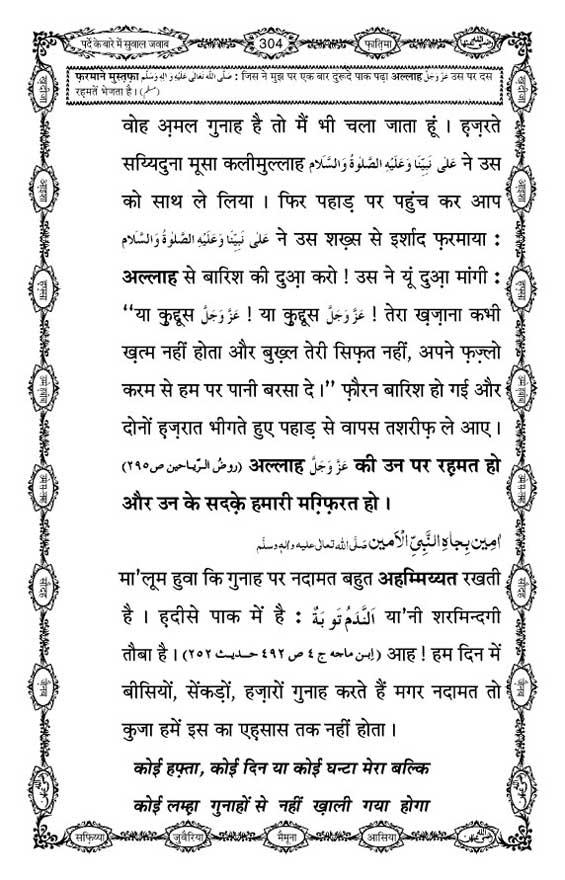 पर्दे के बारे में सुवाल जवाब 304 फ़ातिमा
फ़रमाने मुस्तफ़ा صَلَّى اللّٰهُ تَعَالٰى عَلَيْهِ وَاٰلِهٖ وَسَلَّم : जिस ने मुझ पर एक बार दुरूदे पाक पढ़ा अल्लाह عَزَّ وَجَلَّ उस पर दस
रहमतें भेजता है। (مسلم)
वोह अ़मल गुनाह है तो मैं भी चला जाता हूं । ह़ज़रते
सय्यिदुना मूसा कलीमुल्लाह عَلٰى نَبِيِّنَا وَعَلَيْهِ الصَّلٰوةُ وَالسَّلَام ने उस
को साथ ले लिया । फिर पहाड़ पर पहुंच कर आप
عَلٰى نَبِيِّنَا وَعَلَيْهِ الصَّلٰوةُ وَالسَّلَام ने उस शख़्स से इर्शाद फ़रमाया :
अल्लाह से बारिश की दुआ़ करो ! उस ने यूं दुआ़ मांगी :
“या क़ुद्दूस عَزَّ وَجَلَّ ! या क़ुद्दूस عَزَّ وَجَلَّ ! तेरा ख़ज़ाना कभी
ख़त्म नहीं होता और बुख़्ल तेरी सिफ़त नहीं, अपने फ़ज़्लो
करम से हम पर पानी बरसा दे।” फ़ौरन बारिश हो गई और
दोनों ह़ज़रात भीगते हुए पहाड़ से वापस तशरीफ़ ले आए।
(روضُ الرِّياحين ص٢٩٥) अल्लाह عَزَّ وَجَلَّ की उन पर रह़मत हो
और उन के सदक़े हमारी मग़्फ़िरत हो ।
اٰمِين بِجَاهِ النَّبِيِّ الْاَمين صَلَّى اللّٰه تعالىٰ عليه واٰلهٖ وسلَّم
मा'लूम हुवा कि गुनाह पर नदामत बहुत अहम्मिय्यत रखती
है । ह़दीसे पाक में है : اَلنَّدَمُ تَوْبَةٌ या'नी शरमिन्दगी
तौबा है। (اِبن ماجه ج ٤ ص ٤٩٢ حديث ٤٢٥٢) आह ! हम दिन में
बीसियों, सेंकड़ों, हज़ारों गुनाह करते हैं मगर नदामत तो
कुजा हमें इस का एह़सास तक नहीं होता ।
कोई हफ़्ता, कोई दिन या कोई घन्टा मेरा बल्कि
कोई लम्ह़ा गुनाहों से नहीं ख़ाली गया होगा
सफ़िय्या जुवैरिया मैमूना आसिया